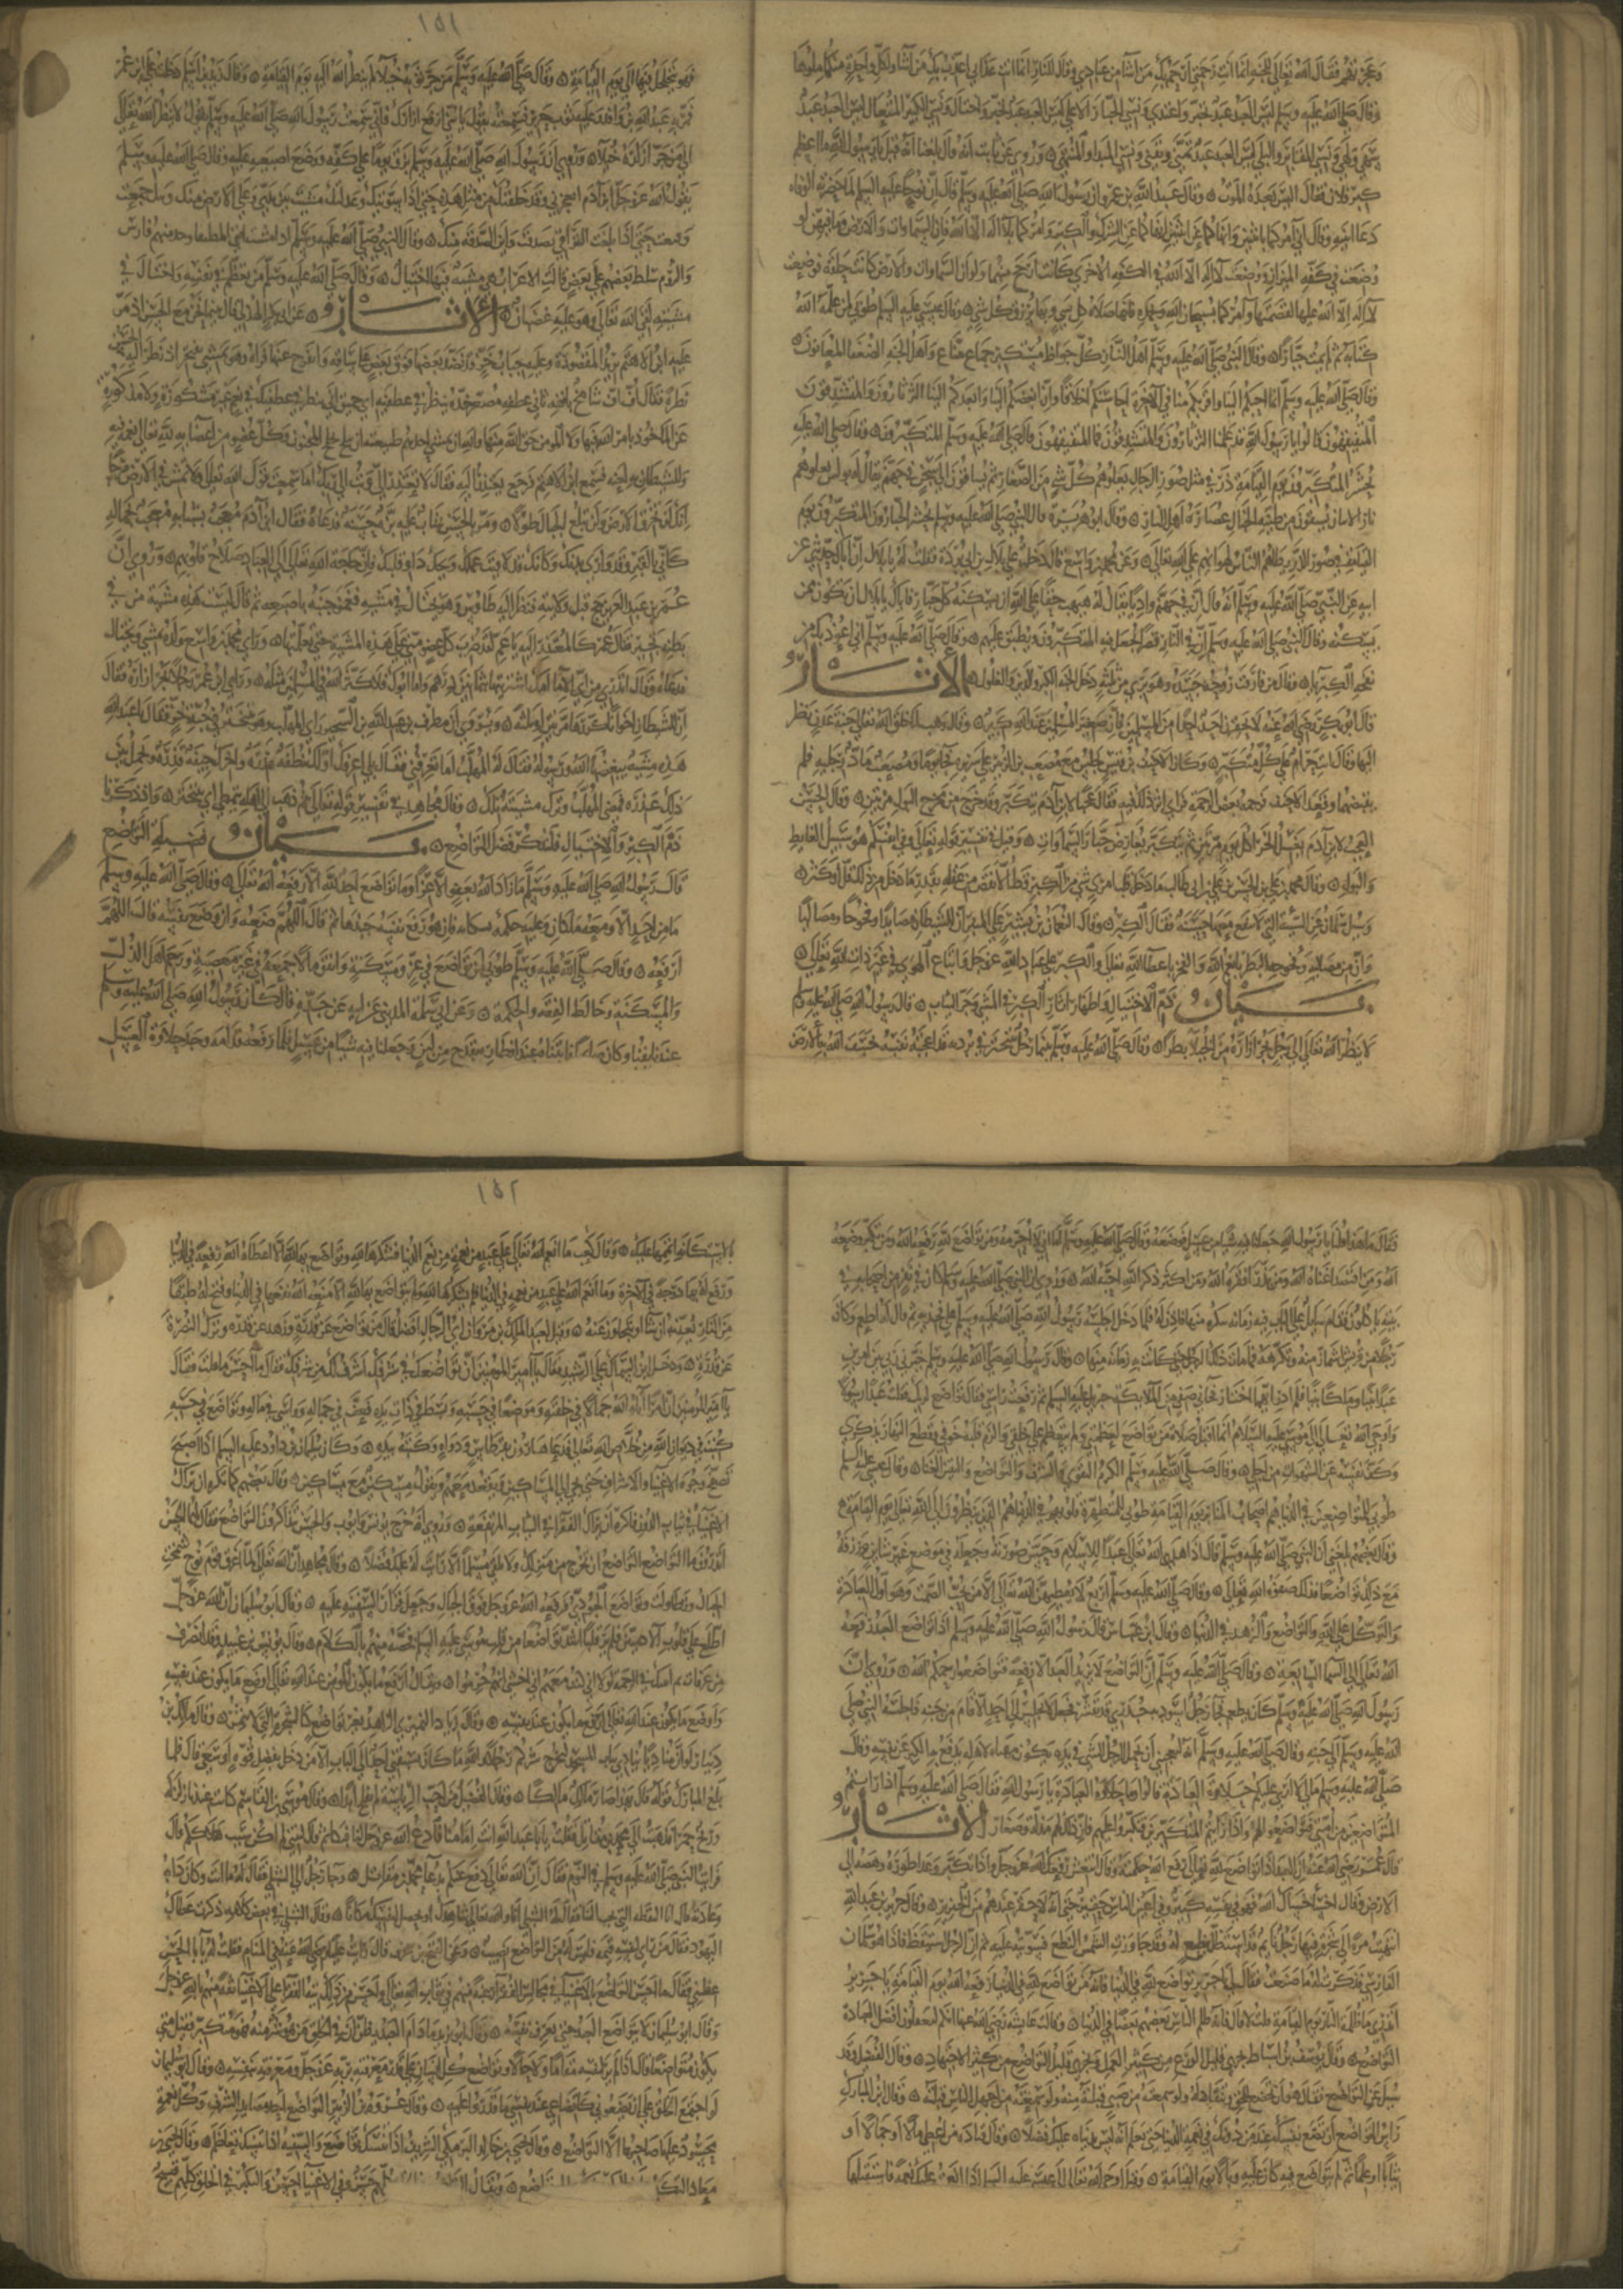 وعجزتهم فقال الله تعالى للجنة انما انت رحمتي ارحم بك من اشا من عبادي وقال للنار انما انت عذابي اعذب بك من اشا ولكل واحدة منكما ملوها
وقال صلى الله عليه وسلم بيس العبد عبد تجبر واعتدى ونسي الجبار الاعلى بيس العبد عبد تجبر واختال ونسي الكبير المتعال بيس العبد عبد
سهى ولهى ونسي المقابر والبلى بيس العبد عبد عتى وبغى ونسي المبدا والمنتهى وروي عن ثابت انه قال بلغنا انه قيل يا رسول الله ما اعظم
كبر فلان فقال اليس بعده الموت وقال عبد الله بن عمرو ان رسول الله صلى الله عليه وسلم قال ان نوحا عليه السلم لما حضرته الوفاه
دعا ابنيه وقال اني امركما باثنين وانهاكما عن اثنين انهاكما عن الشرك والكبر وامركما بلا اله الا الله فان السماوات والارض وما فيهن لو
وضعت في كفه الميزان ووضعت لا اله الا الله في الكفه الاخرى كانت ارجح منهما ولو ان السماوات والارض كانتا حلقه فوضعت
لا اله الا الله عليها لقصمتها وآمركما بسبحان الله وبحمده فانها صلاة كل شي وبها يرزق كل شي وقال عيسى عليه السلم طوبى لمن علمه الله
كتابه ثم لم يمت جبارا وقال النبي صلى الله عليه وسلم اهل النار كل جواظ مستكبر جماع مناع واهل الجنه الضعفا المغلوبون
وقال صلى الله عليه وسلم ان احبكم الينا واقربكم منا في الاخرة احاسنكم اخلاقا وان ابغضكم الينا وابعدكم الينا الثرثارون والمتشدقون
المتفيهقون قالوا يا رسول الله قد علمنا الثرثارون والمتشدقون فما المتفيهقون قال صلى الله عليه وسلم المتكبرون وقال صلى الله عليه
يحشر المتكبرون يوم القيامة ذر في مثل صور الرجال يعلوهم كل شي من الصغار ثم يساقون الى سجن في جهنم يقال له بولس يعلوهم
نار الانيار يسقون من طينة الخبال عصارة اهل النار وقال ابو هريرة قال النبي صلى الله عليه وسلم يحشر الجبارون المتكبرون يوم
القيامة في صور الذر يطاهم الناس لهوانهم على الله تعالى وعن محمد بن واسع قال دخلت على بلال بن ابي بردة فقلت له يا بلال ان اباك حدثني عن
ابيه عن النبي صلى الله عليه وسلم انه قال ان في جهنم واديا يقال له هبهب حقا على الله ان يسكنه كل جبار فاياك يا بلال ان تكون ممن
يسكنه وقال النبي صلى الله عليه وسلم ان في النار قصرا يجعل فيه المتكبرون ويطبق عليهم وقال صلى الله عليه وسلم اني اعوذ بك من
نفخه الكبريا وقال من فارقت روحه جسده وهو بري من ثلث دخل الجنه الكبر والدين والغلول الاثار
قال ابو بكر رضي الله عنه لا يحقرن احد احدا من المسلمين فان صغير المسلمين عند الله كبير وقال وهب لما خلق الله تعالى جنة عدن نظر
اليها وقال انت حرام على كل متكبر وكان الاحنف بن قيس يجلس مع مصعب بن الزبير على سريره فجا يوما ومصعب ماد رجليه فلم
يقبضهما وقعد الاحنف فزحمه بعض الزحمه فراى اثر ذلك فيه فقال عجبا لابن آدم يتكبر وقد خرج من مخرج البول مرتين وقال الحسن
العجب لابن آدم يغسل الخرا كل يوم مرة او مرتين ثم يتكبر يعارض جبار السماوات وقيل في تفسير قوله تعالى وفي انفسكم هو سبيل الغايط
والبول وقال محمد بن علي بن الحسين بن علي بن ابي طالب ما دخل قلب امرئ شي من الكبر قط الا نقص من عقله بقدر ما دخل من ذلك قل او كثر
وسيل سلمان عن السيئة التي لا تنفع معها حسنة فقال الكبر وقال النعمان بن بشير على المنبر ان للشيطان مصايدا وفخوخا ومصاليا
وان من مصاليه وفخوخه البطر بانعم الله والفخر باعطا الله تعالى والكبر على عباد الله عز وجل واتباع الهوى في غير ذات الله تعالى
بيان ذم الاختيال واظهار اثار الكبر في المشي وجر الثياب قال رسول الله صلى الله عليه وسلم
لا ينظر الله تعالى الى رجل يجر ازاره من الخيلا بطرا وقال صلى الله عليه وسلم بينما رجل يتبختر في برديه قد اعجبته نفسه خسف الله به الارض
١٥١
فهو يتجلجل فيها الى يوم القيامة وقال صلى الله عليه وسلم من جر ثوبه خيلا لم ينظر الله اليه يوم القيامة وقال زيد بن اسلم دخلت على ابن عمر
فمر به عبد الله بن واقد عليه ثوب جديد فسمعته يقول يا بني ارفع ازارك فاني سمعت رسول الله صلى الله عليه وسلم يقول لا ينظر الله تعالى
الى من جر ازاره خيلا وروي ان رسول الله صلى الله عليه وسلم بزق يوما على كفه ووضع اصبعه عليه وقال صلى الله عليه وسلم
يقول الله عز وجل ابن آدم اتعجزني وقد خلقتك من مثل هذه حتى اذا سويتك وعدلتك مشيت بين بردين وللارض منك وئيد جمعت
ومنعت حتى اذا بلغت التراقي قلت اتصدق وانى اوان الصدقه منك وقال النبي صلى الله عليه وسلم اذا مشت امتي المطيطا وخدمتهم فارس
والروم سلط بعضهم على بعض قال ابن الاعرابي هي مشية فيها اختيال وقال صلى الله عليه وسلم من تعظم في نفسه واختال في
مشيته لقي الله تعالى وهو عليه غضبان الاثار عن ابي بكر الهذلي قال بينما نحن مع الحسن اذ مر
عليه ابن الاهتم يريد المقصورة وعليه جباب خز قد نضد بعضها فوق بعض على ساقه وانفرج عنها قباه وهو يمشي يتبختر اذ نظر اليه الحسن
نظرة فقال اف اف شامخ بانفه ثاني عطفه مصعر خده ينظر في عطفيه اي حميق انت تنظر في عطفيك في نعم غير مشكورة ولا مذكورة
غير الماخوذ بامر الله فيها ولا المودى حق الله منها والله ان يمشي احدهم طبيعته ان يتخلج تخلج المجنون وفي كل عضو من اعضايه لله تعالى نعمة
وللشيطان به لعنه فسمع ابن الاهتم فرجع يعتذر اليه فقال لا تعتذر الي وتب الى ربك اما سمعت قول الله تعالى ولا تمش في الارض مرحا
انك لن تخرق الارض ولن تبلغ الجبال طولا ومر بالحسن شاب عليه بزة حسنة فدعاه فقال ابن آدم معجب بشبابه معجب بجماله
كان القبر قد وارى بدنك وكانك قد لاقيت عملك ويحك داو قلبك فان حاجه الله تعالى الى العباد صلاح قلوبهم وروي ان
عمر بن عبد العزيز حج قبل ولايته فنظر اليه طاوس وهو يختال في مشيه فغمز جنبه باصبعه ثم قال ليست هذه مشية من في
بطنه خير فقال عمر كالمعتذر اليه يا عم لقد ضرب كل عضو مني على هذه المشية حتى تعلمتها وراى محمد بن واسع ولده يمشي ويختال
فدعاه وقال اتدري من انت اما امك اشتريتها بمائتي درهم واما ابوك فلا كثر الله في المسلمين مثله وراى ابن عمر رجلا يجر ازاره فقال
ان للشيطان اخوانا كررها مرتين او ثلثه ويروى ان مطرف بن عبد الله بن الشخير راى المهلب وهو يتبختر في جبة خز فقال يا عبد الله
هذه مشية يبغضها الله ورسوله فقال له المهلب اما تعرفني فقال بلى اعرفك اولك نطفة مذرة واخرك جيفة قذرة وتحمل بين
ذلك عذرة فمضى المهلب وترك مشيته تلك وقال مجاهد في تفسير قوله تعالى ثم ذهب الى اهله يتمطى اي يتبختر واذ ذكرنا
ذم الكبر والاختيال فلنذكر فضل التواضع بيان فضيلة التواضع
قال رسول الله صلى الله عليه وسلم ما زاد الله عبدا بعفو الا عزا وما تواضع احد لله الا رفعه الله تعالى وقال صلى الله عليه وسلم
ما من احد الا ومعه ملكان وعليه حكمة يمسكانه فان هو رفع نفسه جبذاها ثم قالا اللهم ضعه وان وضع نفسه قالا اللهم
ارفعه وقال صلى الله عليه وسلم طوبى لمن تواضع في غير مسكنة وانفق مالا جمعه في غير معصية ورحم اهل الذل
والمسكنة وخالط الفقه والحكمة وعن ابي سلمة المديني عن ابيه عن جده قال كان رسول الله صلى الله عليه وسلم
عندنا بقبا وكان صايما فاتيناه عند افطاره بقدح من لبن وجعلنا فيه شيا من عسل فلما رفعه وذاقه وجد حلاوة العسل
فقال ما هذا قلنا يا رسول الله جعلنا فيه شيا من عسل فوضعه وقال صلى الله عليه وسلم اما اني لا احرمه ومن تواضع لله رفعه الله ومن تكبر وضعه
الله ومن اقتصد اغناه الله ومن بذر افقره الله ومن اكثر ذكر الله احبه الله وروي ان النبي صلى الله عليه وسلم كان في نفر من اصحابه في
بيته ياكلون فقام سايل على الباب وبه زمانه يتكره منها فاذن له فلما دخل اجلسه رسول الله صلى الله عليه وسلم على فخذه ثم قال له اطعم وكان
رجلا من قريش اشماز منه وتكرهه فما مات ذلك الرجل حتى كانت به زمانة مثلها وقال رسول الله صلى الله عليه وسلم خيرني ربي بين امرين
عبدا رسولا او ملكا نبيا فلم ادر ايهما اختار وكان صفيي من الملايكة جبريل عليه السلم فرفعت راسي فقال تواضع لربك فقلت عبدا رسولا
واوحى الله تعالى الى موسى عليه السلام انما اقبل صلاة من تواضع لعظمتي ولم يتعظم على خلقي والزم قلبه خوفي وقطع النهار بذكري
وكف نفسه عن الشهوات من اجلي وقال صلى الله عليه وسلم الكرم التقوى والشرف والتواضع واليقين الغنا وقال عيسى عليه السلم
طوبى للمتواضعين في الدنيا هم اصحاب المنابر يوم القيامة طوبى للمطهرة قلوبهم في الدنيا هم الذين ينظرون الى الله تعالى يوم القيامة
وقال بعضهم بلغني ان النبي صلى الله عليه وسلم قال اذا هدى الله تعالى عبدا للاسلام وحسن صورته وجعله في موضع غير شاين له ورزقه
مع ذلك تواضعا فذلك صفوة الله تعالى وقال صلى الله عليه وسلم اربع لا يعطيهن الله تعالى الا من يحب الصمت وهو اول العبادة
والتوكل على الله والتواضع والزهد في الدنيا وقال ابن عباس قال رسول الله صلى الله عليه وسلم اذا تواضع العبد رفعه
الله تعالى الى السما السابعة وقال صلى الله عليه وسلم ان التواضع لا يزيد العبد الا رفعة فتواضعوا يرحمكم الله وروي ان
رسول الله صلى الله عليه وسلم كان يطعم فجا رجل اسود به جدري قد تقشر فجعل لا يجلس الى احد الا قام من جنبه فاجلسه النبي صلى
الله عليه وسلم الى جنبه وقال صلى الله عليه وسلم انه ليعجبني ان يحمل الرجل الشي في يده يكون مهنة لاهله يدفع به الكبر عن نفسه وقال
صلى الله عليه وسلم ما لي لا ارى عليكم حلاوة العبادة قالوا وما حلاوة العبادة يا رسول الله فقال صلى الله عليه وسلم اذا رايتم
المتواضعين من امتي فتواضعوا لهم واذا رايتم المتكبرين فتكبروا عليهم فان ذلك لهم مذلة وصغار الاثار
قال عمر رضي الله عنه ان العبد اذا تواضع لله تعالى رفع الله حكمته وقال انتعش رفعك الله عز وجل واذا تكبر وعدا طوره وهصه الى
الارض فقال اخسأ خساك الله فهو في نفسه كبير وفي اعين الناس حقير حتى انه لاحقر عندهم من الخنزير وقال جرير بن عبد الله
انتهيت مرة الى شجرة فيها رجل نايم قد استظل بنطع له وقد جاوزت الشمس النطع فسويته عليه ثم ان الرجل استيقظ فاذا هو سلمان
الفارسي فذكرت له ما صنعت فقال لي يا جرير تواضع لله في الدنيا فانه من تواضع لله في الدنيا رفعه الله يوم القيامة يا جرير
اتدري ما ظلمة النار يوم القيامة قلت لا قال فانه ظلم الناس بعضهم بعضا في الدنيا وقالت عايشة رضي الله عنها انكم لتغفلون عن افضل العبادة
التواضع وقال يوسف بن اسباط يجزى قليل الورع من كثير العمل ويجزى قليل التواضع من كثير الاجتهاد وقال الفضيل وقد
سيل عن التواضع فقال هو ان تخضع للحق وتنقاد له ولو سمعته من صبي قبلته منه ولو سمعته من اجهل الناس قبلته وقال ابن المبارك
راس التواضع ان تضع نفسك عند من دونك في نعمة الدنيا حتى تعلمه انه ليس لك بدنياك عليه فضل وقال قتادة من اعطي مالا او جمالا او
ثيابا او علما ثم لم يتواضع فيه كان عليه وبالا يوم القيامة وقيل اوحى الله تعالى الى عيسى عليه السلم اذا انعمت عليك نعمة فاستقبلها
١٥٢
بالاستكانة اتممها عليك وقال كعب ما انعم الله تعالى على عبد من نعمة من نعم الدنيا فشكرها لله وتواضع بها لله الا اعطاه الله نفعها في الدنيا
ورفع له بها درجة في الاخرة وما انعم الله على عبد من نعمة في الدنيا فلم يشكرها لله ولم يتواضع بها لله الا منعه الله نفعها في الدنيا وفتح له طبقا
من النار يعذبه ان شا او يتجاوز عنه وقيل لعبد الملك بن مروان اي الرجال افضل قال من تواضع عن قدرة وزهد عن قدرة وترك النصرة
عن قدرة ودخل ابن السماك على الرشيد فقال يا امير المومنين ان تواضعك في شرفك اشرف لك من شرفك فقال ما احسن ما قلت فقال
يا امير المومنين ان امرأ آتاه الله جمالا في خلقته وموضعا في حسبه وبسط له في ذات يده فعف في جماله وواسى في ماله وتواضع في حسبه
كتب في ديوان الله من خلص اوليا الله تعالى فدعا هارون بدواة وقرطاس وكتبه بيده وكان سليمان بن داود عليه السلم اذا اصبح
تصفح وجوه الاغنيا والاشراف حتى يجي الى المساكين فيقعد معهم ويقول مسكين مع مساكين وقال بعضهم كما تكره ان يراك
الاغنيا في ثياب الدون فكذلك فاكره ان يراك الفقرا في الثياب المرتفعة وروي انه خرج يونس وايوب والحسن يتذاكرون التواضع فقال لهم الحسن
اتدرون ما التواضع التواضع ان تخرج من منزلك ولا تلقى مسلما الا رايت له عليك فضلا وقال مجاهد ان الله تعالى لما اغرق قوم نوح شمخت
الجبال وتطاولت وتواضع الجودي فرفعه الله عز وجل فوق الجبال وجعل قرار السفينة عليه وقال ابو سليمان ان الله عز وجل
اطلع على قلوب الادميين فلم يجد قلبا اشد تواضعا من قلب موسى عليه السلم فخصه منهم بالكلام وقال يونس بن عبيد وقد انصرف
من عرفات لم اشك في الرحمة لولا اني كنت معهم اني اخشى انهم حرموا بسببي ويقال ارفع ما يكون المومن عند الله تعالى اوضع ما يكون عند نفسه
واوضع ما يكون عند الله تعالى ارفع ما يكون عند نفسه وقال زياد النميري الزاهد بغير تواضع كالشجرة التي لا تثمر وقال مالك بن
دينار لو ان مناديا ينادي بباب المسجد ليخرج شركم رجلا والله ما كان احد يسبقني الى الباب الا من دخل بفضل قوة او سعي قال فلما
بلغ ابن المبارك قوله قال بهذا صار مالك مالكا وقال الفضيل من احب الرياسة لم يفلح ابدا وقال موسى بن القاسم كانت عندنا زلزلة
وريح حمرا فذهبت الى محمد بن مقاتل فقلت يا ابا عبد الله انت امامنا فادع الله عز وجل لنا فبكى ثم قال ليتني لم اكن سبب هلاككم قال
فرايت النبي صلى الله عليه وسلم في النوم فقال ان الله تعالى دفع عنكم بدعا محمد بن مقاتل وجا رجل الى الشبلي فقال له ما انت وكان دابه
وعادته قال انا النقطة التي تحت البا فقال له الشبلي اباد الله شاهدك او تجعل لنفسك مكانا وقال الشبلي في بعض كلامه ذلي عطل ذل
اليهود فقال من راى لنفسه قيمة فليس له من التواضع نصيب وعن ابي الفتح بن شخرف قال رايت علي بن ابي طالب رضي الله عنه في المنام فقلت له يا ابا الحسن
عظني فقال ما احسن التواضع بالاغنيا في مجالس الفقرا رغبة منهم في ثواب الله تعالى واحسن من ذلك تيه الفقرا على الاغنيا ثقة منهم بالله عز وجل
وقال ابو سليمان لا يتواضع العبد حتى يعرف نفسه وقال ابو يزيد ما دام العبد يظن ان في الخلق من هو شر منه فهو متكبر فقيل متى
يكون متواضعا قال اذا لم ير لنفسه مقاما ولا حالا وتواضع كل انسان على قدر معرفته بربه عز وجل ومعرفته بنفسه وقال ابو سليمان
لو اجتمع الخلق على ان يضعوني كاتضاعي عند نفسي ما قدروا عليه وقال عروة بن الزبير التواضع احد مصايد الشرف وكل نعمة
محسود عليها صاحبها الا التواضع وقال يحيى بن خالد البرمكي الشريف اذا تنسك تواضع والسفيه اذا تنسك تعاظم وقال يحيى بن
معاذ التكبر ... تواضع ويقال ... حسن وفي الاغنيا احسن والتكبر في الخلق كلهم قبيح